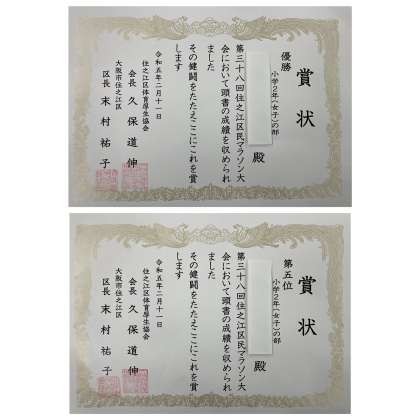 賞状
優勝
小学2年(女子)の部
殿
第三十八回住之江区民マラソン大
会において頭書の成績を収められ
ました
その健闘をたたえここにこれを賞
します
令和五年二月十一日
住之江区体育厚生協会
会長 久保道伸
大阪市住之江区
区長 末村祐子
賞状
第五位
小学2年(女子)の部
殿
第三十八回住之江区民マラソン大
会において頭書の成績を収められ
ました
その健闘をたたえここにこれを賞
します
令和五年二月十一日
住之江区体育厚生協会
会長 久保道伸
大阪市住之江区
区長 末村祐子